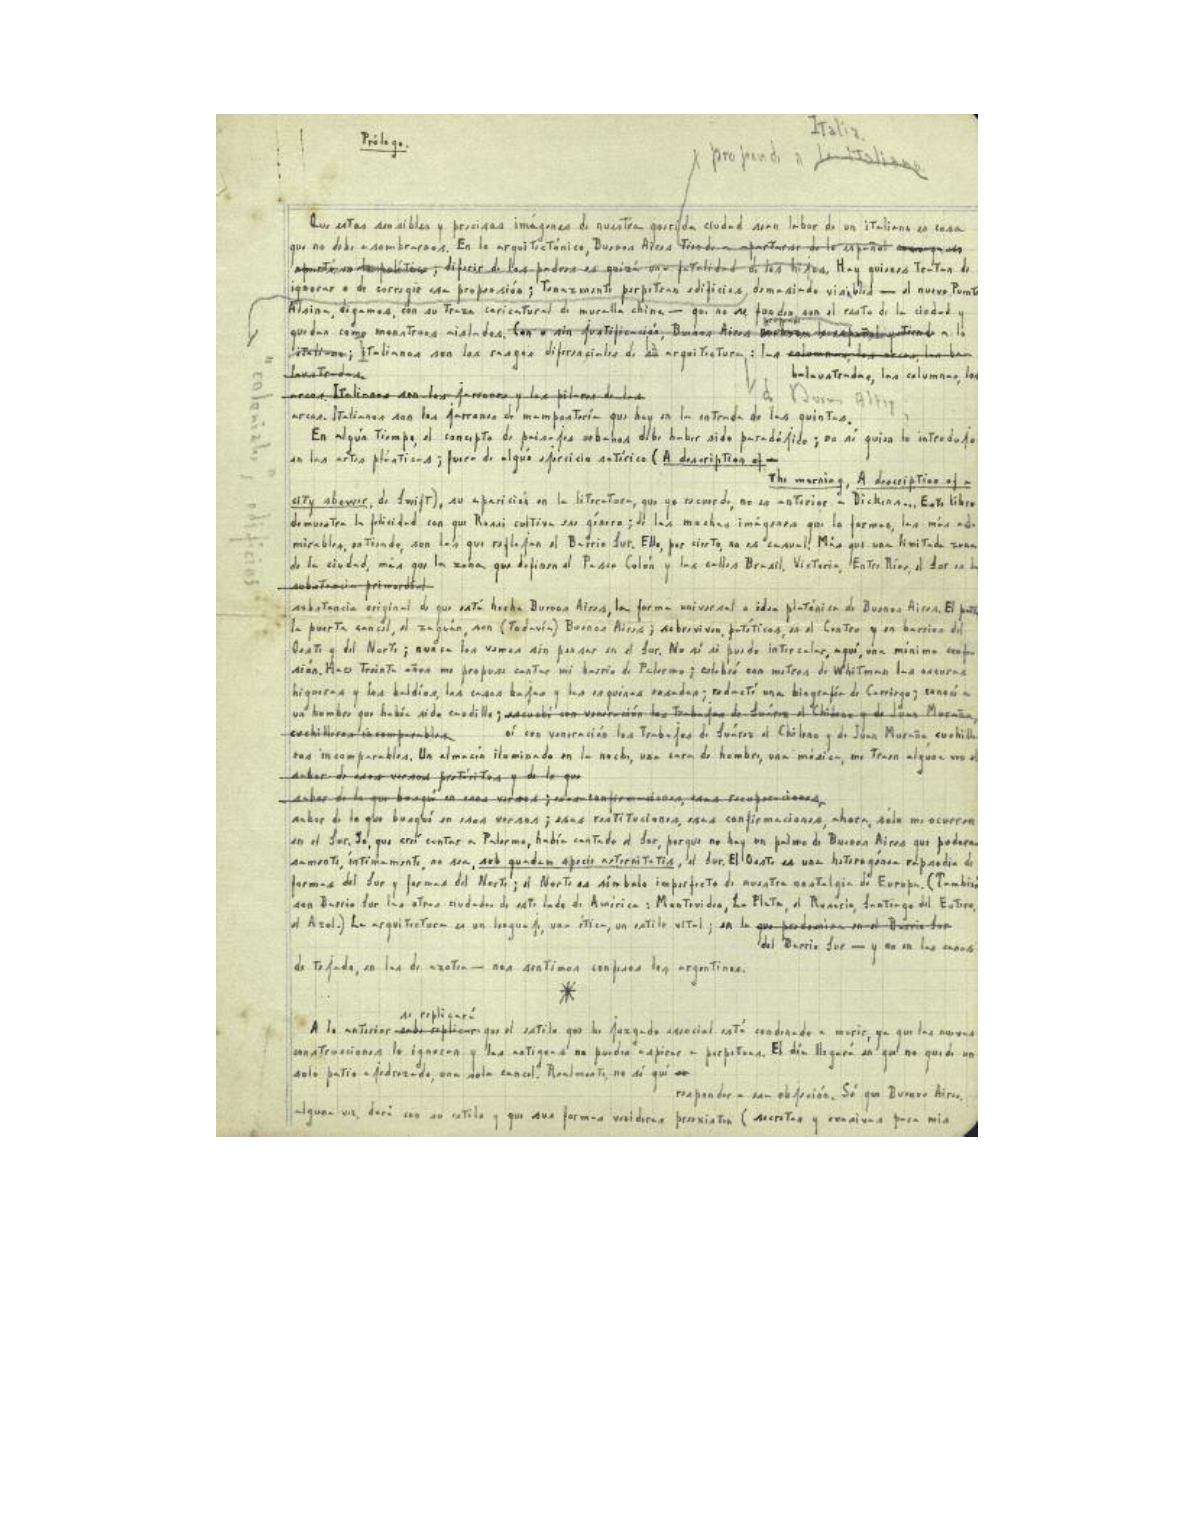 Prólogo.
Italia.
propende a lo italiano
Que estas sensibles y precisas imágenes de nuestra querida ciudad sean labor de un italiano es cosa
que no debe asombrarnos. En lo arquitectónico, Buenos Aires tiende a apartarse de lo español
apartó en lo político; diferir de los padres es quizá una fatalidad de los hijos. Hay quienes tratan de
ignorar o de corregir esa propensión; tenazmente perpetran edificios demasiado visibles — el nuevo Puente
Alsina, digamos, con su traza caricatural de muralla china — que no se funden con el resto de la ciudad y
quedan como monstruos aislados. Con o sin justificación, Buenos Aires rechaza lo español y tiende a lo
italiano; italianos son los rasgos diferenciales de su arquitectura: las columnas, los arcos, las ba-
laustradas.
balaustradas, las columnas, los
arcos. Italianos son los jarrones y los pilares de las
de Buenos Aires
arcos. Italianos son los jarrones de mampostería que hay en la entrada de las quintas.
"coloniales" edificios
En algún tiempo, el concepto de paisajes urbanos debe haber sido paradójico; no sé quien lo introdujo
en las artes plásticas; fuera de algún ejercicio satírico (A description of
the morning, A description of a
city shower, de Swift), su aparición en la literatura, que yo recuerde, no es anterior a Dickens... Este libro
demuestra la felicidad con que Rossi cultiva ese género; de las muchas imágenes que lo forman, las más ad-
mirables, entiendo, son las que reflejan el Barrio Sur. Ello, por cierto, no es casual. Más que una limitada zona
de la ciudad, más que la zona que definen el Paseo Colón y las calles Brasil, Victoria, Entre Ríos, el Sur es la
substancia primordial
substancia original de que está hecha Buenos Aires, la forma universal o idea platónica de Buenos Aires. El patio,
la puerta cancel, el zaguán, son (todavía) Buenos Aires; sobreviven, patéticos, en el Centro y en barrios del
Oeste y del Norte; nunca los vemos sin pensar en el Sur. No sé si puedo intercalar, aquí, una mínima confe-
sión. Hace treinta años me propuse cantar mi barrio de Palermo; celebré con metros de Whitman las oscuras
higueras y los baldíos, las casas bajas y las esquinas rosadas; redacté una biografía de Carriego; conocí a
un hombre que había sido caudillo; escuché con veneración los trabajos de Suárez el Chileno y de Juan Muraña,
cuchilleros incomparables. oí con veneración los trabajos de Suárez el Chileno y de Juan Muraña, cuchille-
ros incomparables. Un almacén iluminado en la noche, una cara de hombre, una música, me traen alguna vez el
sabor de esos versos pretéritos y de lo que
sabor de lo que busqué en esos versos; esas confirmaciones, esas recuperaciones,
sabor de lo que busqué en esos versos; esas restituciones, esas confirmaciones, ahora, sólo me ocurren
en el Sur. Yo, que creí cantar a Palermo, había cantado el Sur, porque no hay un palmo de Buenos Aires que pudoro-
samente, íntimamente, no sea, sub quadam specie aeternitatis, el Sur. El Oeste es una heterogénea rapsodia de
formas del Sur y formas del Norte; el Norte es símbolo imperfecto de nuestra nostalgia de Europa. (También
son Barrio Sur las otras ciudades de este lado de América: Montevideo, La Plata, el Rosario, Santiago del Estero,
el Azul.) La arquitectura es un lenguaje, una ética, un estilo vital; en la que predomina en el Barrio Sur
del Barrio Sur — y no en las casas
de tejado, en las de azotea — nos sentimos confesos los argentinos.
*
se replicará
A lo anterior cabe replicar que el estilo que he juzgado esencial está condenado a morir, ya que las nuevas
construcciones lo ignoran y las antiguas no pueden aspirar a perpetuas. El día llegará en que no quede un
solo patio ajedrezado, una sola cancel. Realmente, no sé qué
responder a esa objeción. Sé que Buenos Aires,
alguna vez, dará con su estilo y que sus formas venideras preexisten (secretas y evasivas para mis